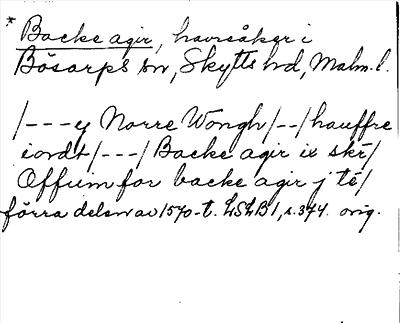 * Backe agir, havreåker i
Bösarps sn, Skytts hd, Malm. l.
/---y Norre Wongh/--/hauffre
iordt/---/Backe agir ix skr/
Offrum for backe agir j te/
förra delen av 1570-t. LSLB 1, s. 344. orig.